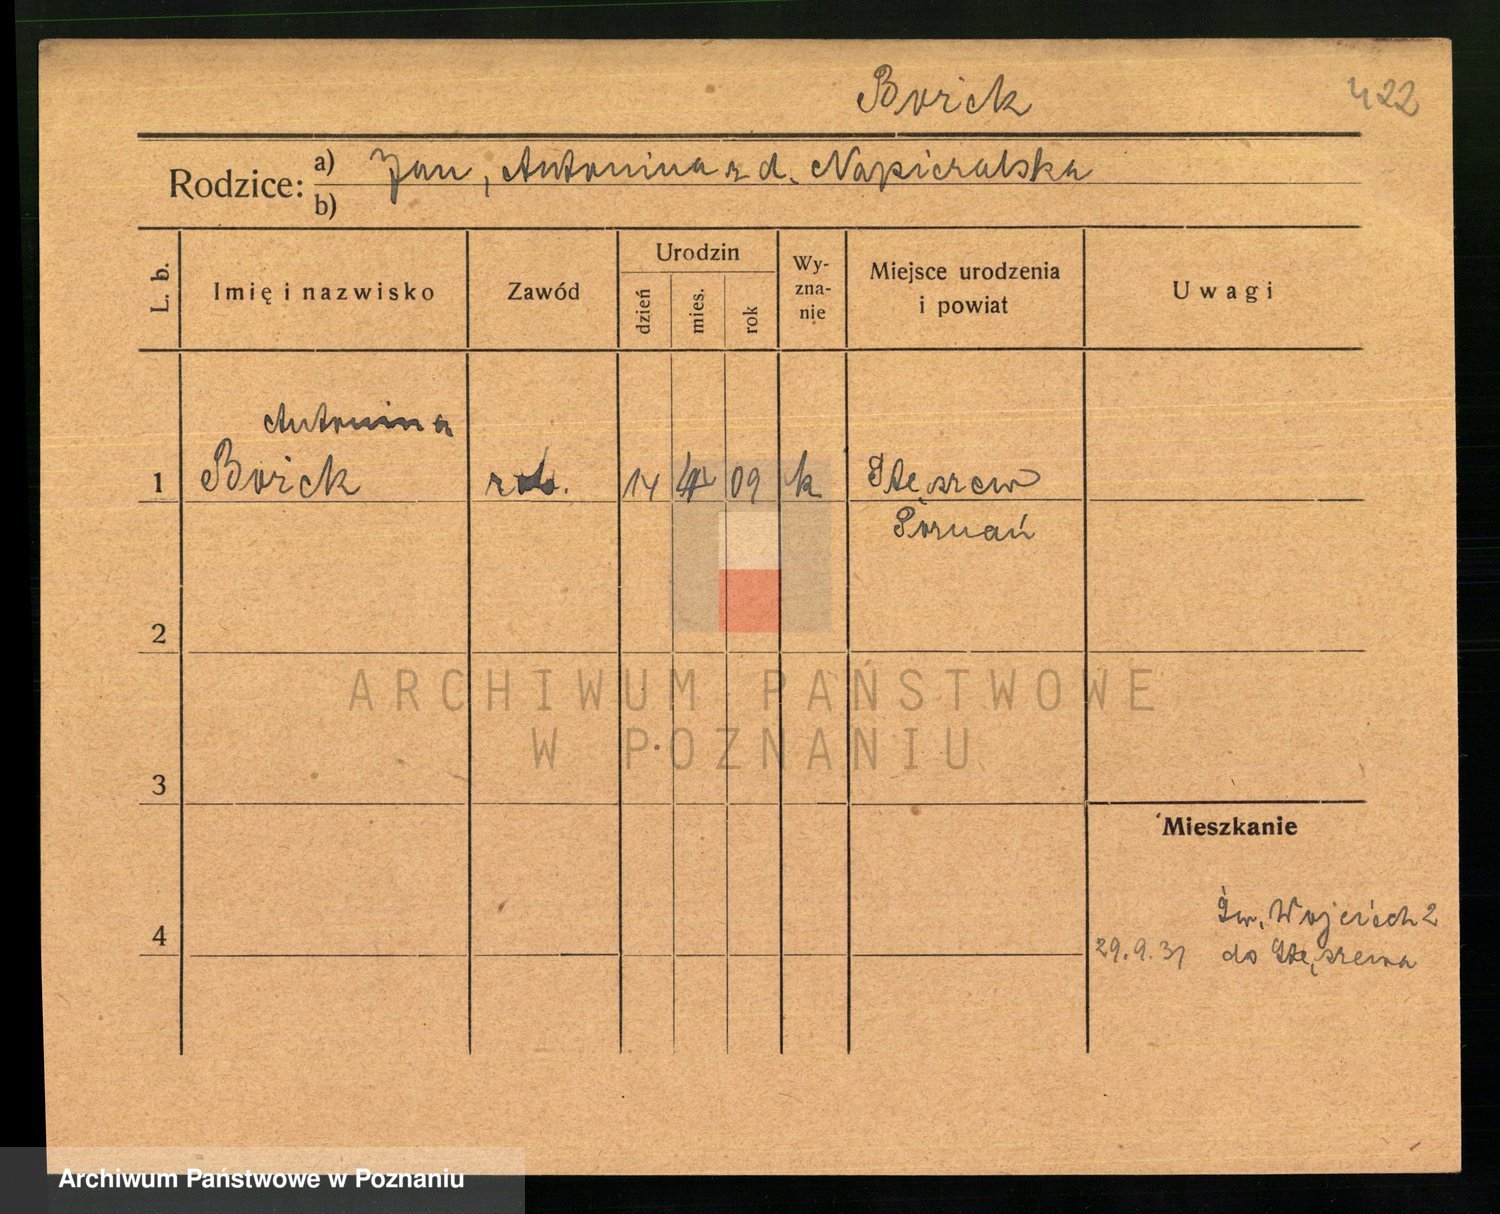 Borek
422
Rodzice: a) Jan, Antonina z d. Napieralska
b)
L. b.
Imię i nazwisko
Zawód
Urodzin
dzień
mies.
rok
Wy-
zna-
nie
Miejsce urodzenia
i powiat
Uwagi
Antonina
1 Borek rob. 14 09 k Stęszew
Poznań
2
3
4
Mieszkanie
Św. Wojciech 2
29.9.31 do Stęszewa
ARCHIWUM PAŃSTWOWE
W POZNANIU
Archiwum Państwowe w Poznaniu